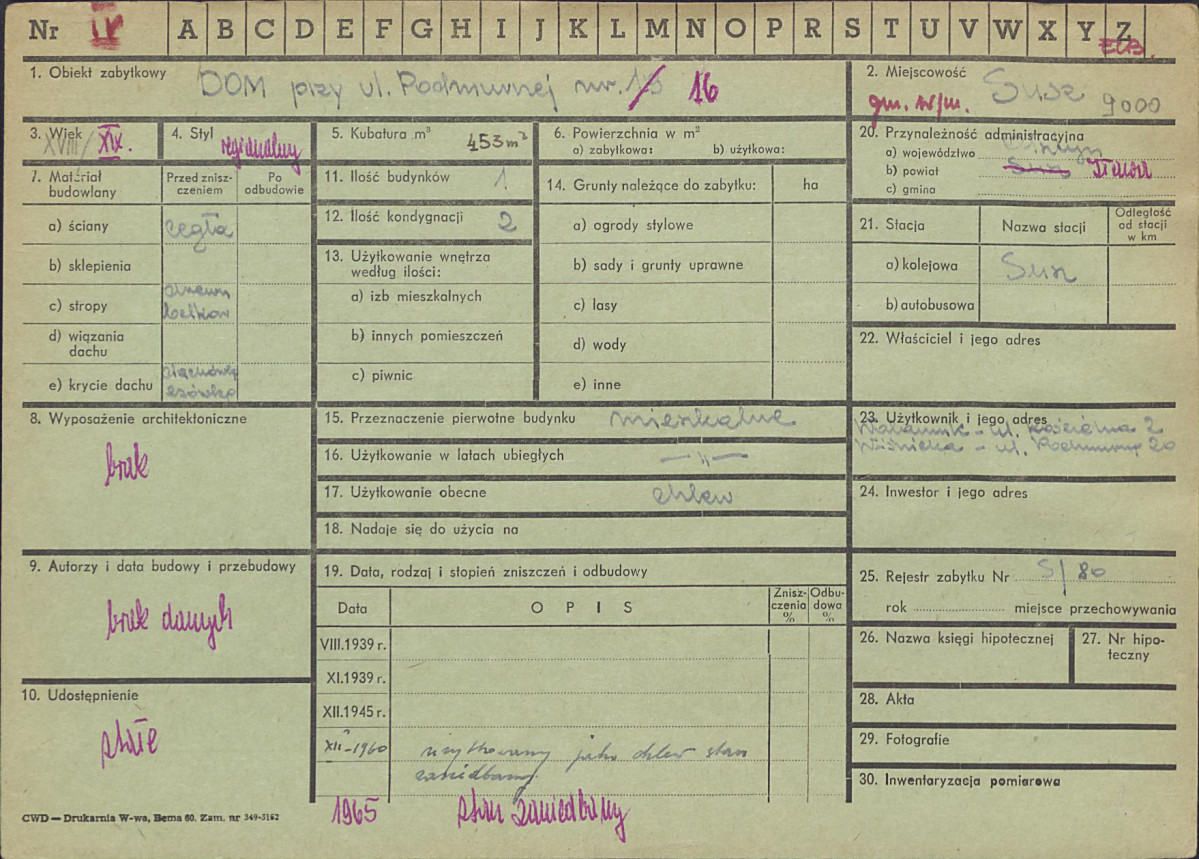 Nr IV A B C D E F G H I J K L M N O P R S T U V W X Y Z
1. Obiekt zabytkowy DOM przy ul. Podmurnej nr. 16
2. Miejscowość Susz 9000
gm. w/m.
3. Wiek XVIII/ XIX.
4. Styl regionalny
5. Kubatura m³ 453 m³
6. Powierzchnia w m²
a) zabytkowa: b) użytkowa:
20. Przynależność administracyjna
a) województwo
b) powiat Susz Iława
c) gmina
7. Materiał budowlany
Przed znisz-
czeniem
Po
odbudowie
a) ściany cegła
b) sklepienia
c) stropy drewn
belkow
d) wiązania
dachu
e) krycie dachu dachówka
esówka
11. Ilość budynków 1
12. Ilość kondygnacji 2
13. Użytkowanie wnętrza
według ilości:
a) izb mieszkalnych
b) innych pomieszczeń
c) piwnic
14. Grunty należące do zabytku: ha
a) ogrody stylowe
b) sady i grunty uprawne
c) lasy
d) wody
e) inne
21. Stacja Nazwa stacji
Odległość
od stacji
w km
a) kolejowa Susz
b) autobusowa
22. Właściciel i jego adres
8. Wyposażenie architektoniczne
brak
15. Przeznaczenie pierwotne budynku mieszkalne
16. Użytkowanie w latach ubiegłych — " —
17. Użytkowanie obecne chlew
18. Nadaje się do użycia na
23. Użytkownik i jego adres
- ul. Kościelna 2
- ul. Podmurna 20
24. Inwestor i jego adres
9. Autorzy i data budowy i przebudowy
brak danych
10. Udostępnienie
stałe
19. Data, rodzaj i stopień zniszczeń i odbudowy
Data O P I S
Znisz-
czenia
%
Odbu-
dowa
%
VIII.1939 r.
XI.1939 r.
XII.1945 r.
XII-1960 użytkowany jako chlew stan
zaniedbany.
1965 stan zaniedbany
25. Rejestr zabytku Nr S/80
rok miejsce przechowywania
26. Nazwa księgi hipotecznej
27. Nr hipo-
teczny
28. Akta
29. Fotografie
30. Inwentaryzacja pomiarowa
CWD — Drukarnia W-wa, Bema 60. Zam. nr 349-5162